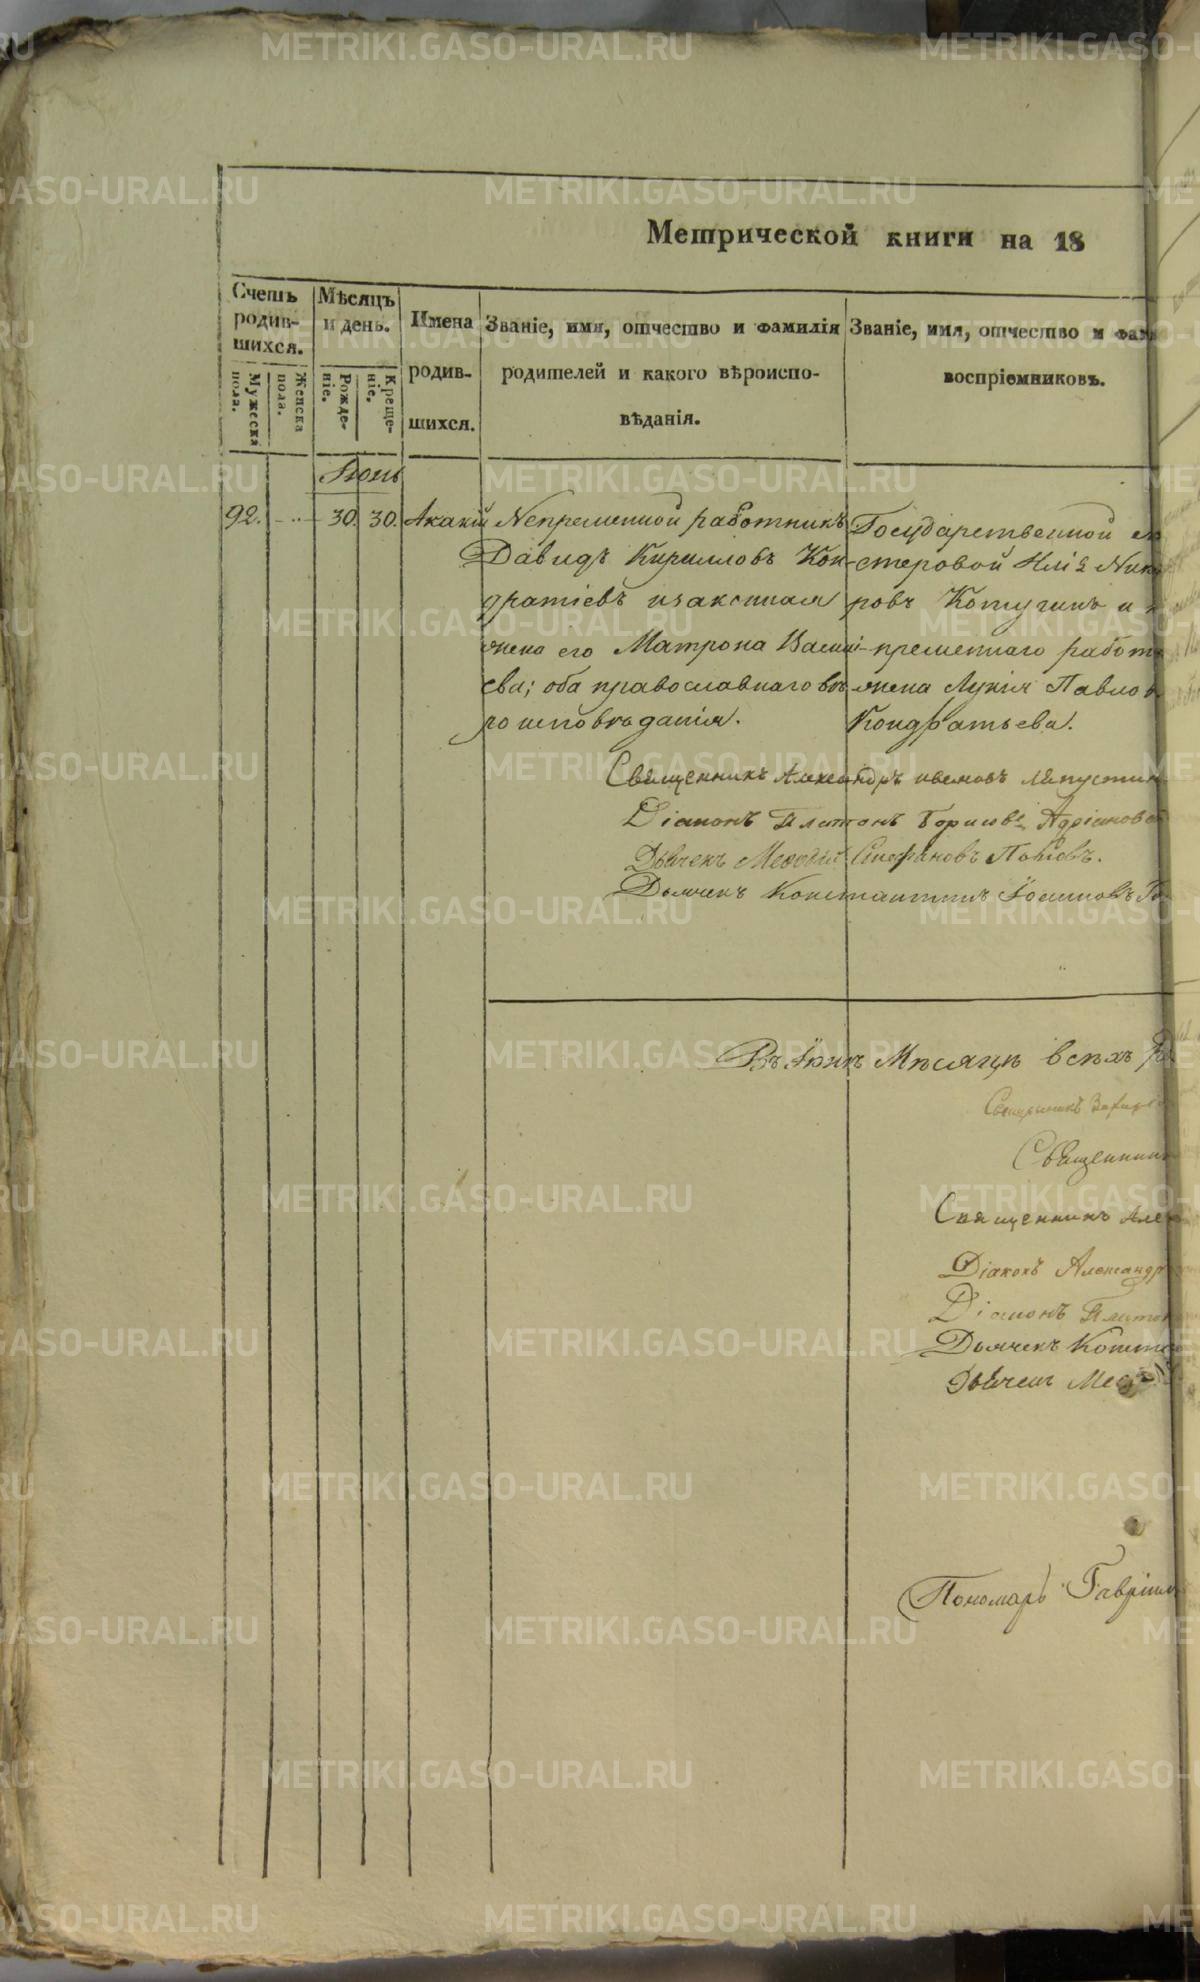 METRIKI.GASO-URAL.RU
Метрической книги на 18
Счетъ родив-шихся.
Мужеска пола.
Женска пола.
Мѣсяцъ и день.
Рожде-ніе.
Креще-ніе.
Имена родив-шихся.
Званіе, имя, отчество и фамилія
родителей и какого вѣроиспо-
вѣданія.
Званіе, имя, отчество и фами
воспріемниковъ.
Іюнь
92. 30. 30. Акакій
Непременной работникъ
Давидъ Кирилловъ Кон-
дратіевъ и законная
жена его Матрона Васильева
ева; оба православнаго вѣ
роисповѣданія.
Государственной
стеровой Илія Ники
ровъ Котугинъ и
пременнаго работ
жена Лукія Павлов
Кондратьева.
Священникъ Александръ Ивановъ Ляпустин
Діаконъ Платонъ Борисовъ Адріановс
Дьячекъ Меѳодій Стефановъ Поповъ.
Дьячекъ Константинъ Іосифовъ
Въ Іюнѣ Мѣсяцѣ всѣхъ
Священникъ
Священник
Священникъ Але
Діаконъ Александр
Діаконъ Платон
Дьячекъ Конст
Дьячекъ Меѳ
Пономарь Гавріил